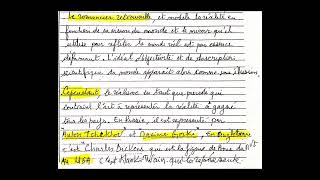 le romancier retravaille, et modèle la réalité en
fonction de sa vision du monde et le miroir qu'il
utilise pour refléter le monde réel est par essence
déformant. L'idéal d'objectivité et de description
scientifique du monde apparaît alors comme une illusion.
Cependant, le réalisme en tant que procédé qui
contraint l'art à représenter la réalité a gagné
tous les pays. En Russie, il est représenté par
Anton Tchekhov et Maxime Gorki, En Angleterre
c'est Charles Dickens qui est la figure de
Au USA c'est Twain qui le représente